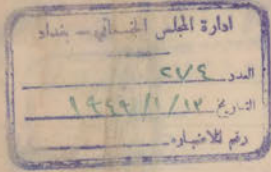 ادارة المجلس الجسماني - بغداد
العدد ٢٧/٤
التاريخ ١٩٤٩/١/١٢
رقم الاضبارة